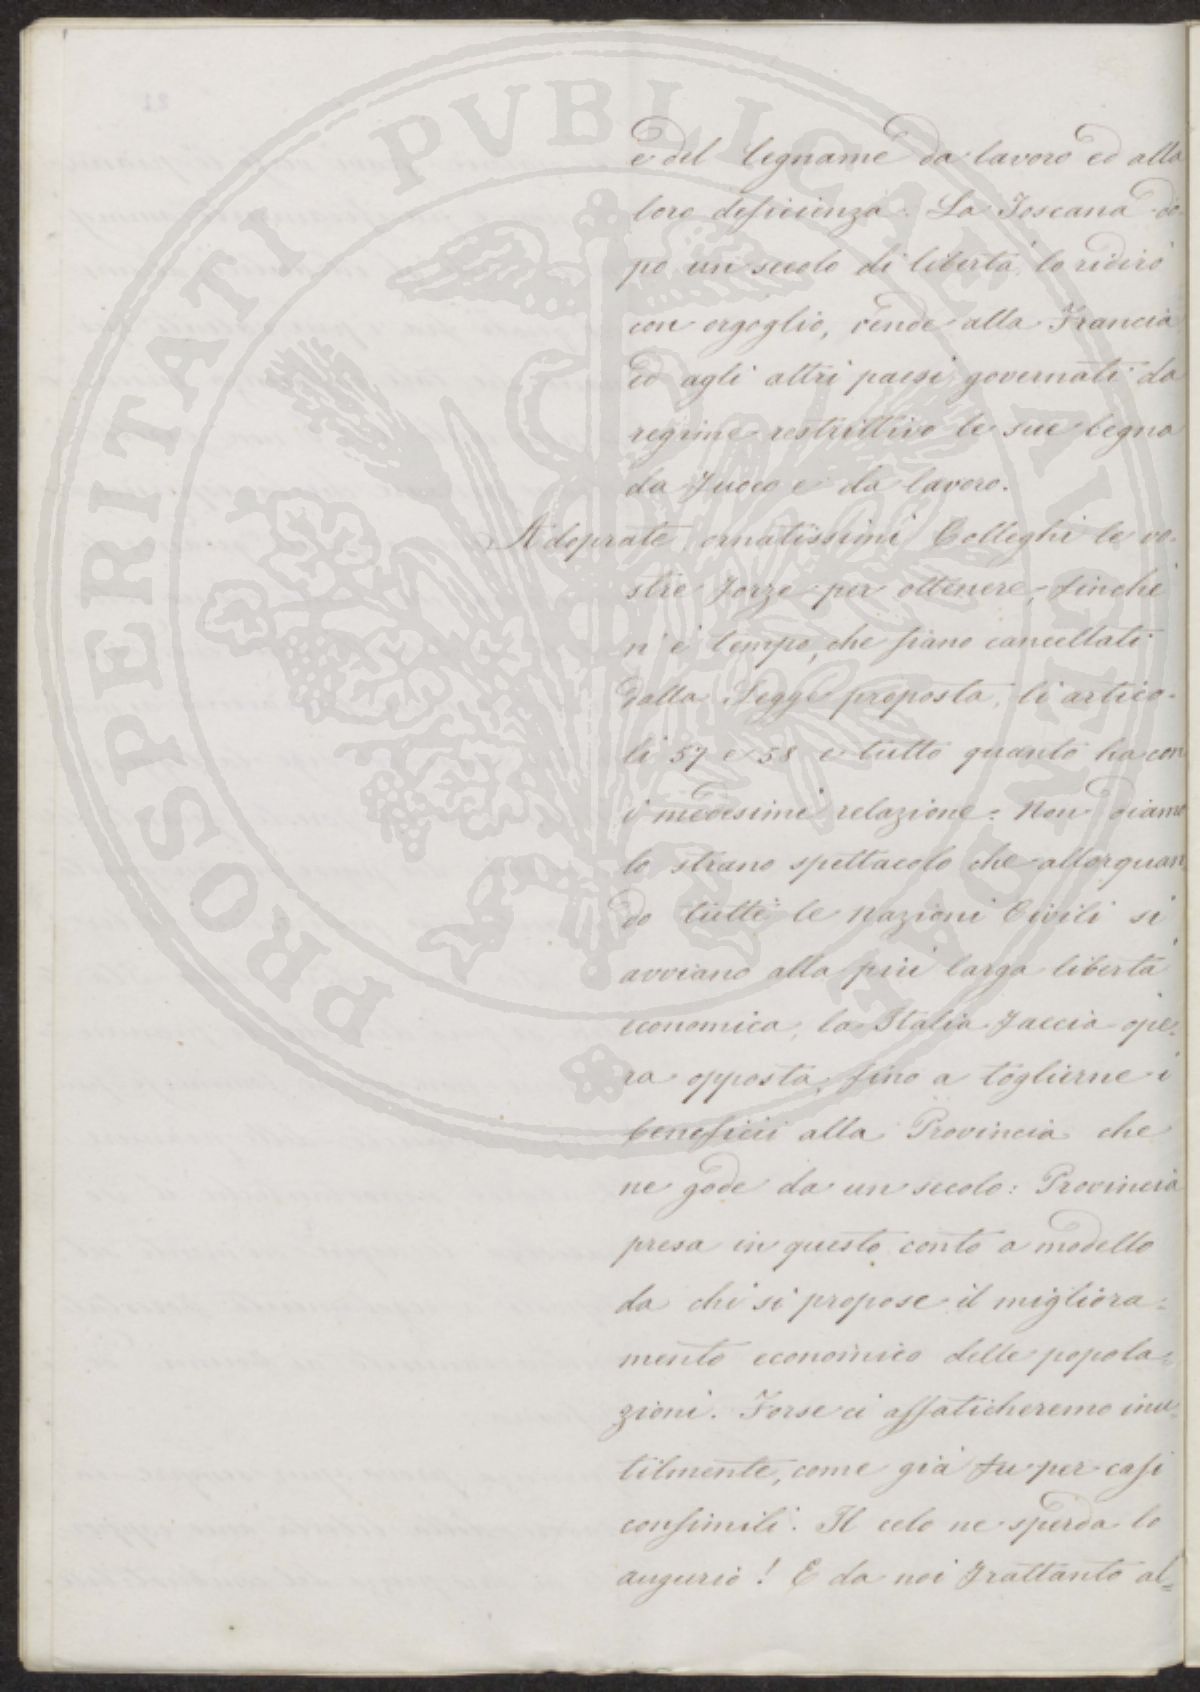 PROSPERITATI PUBLICAE AUGENDAE
e del legname da lavoro ed alla
loro deficienza. La Toscana do-
po un secolo di libertà, lo ridirò
con orgoglio, vende alla Francia
ed agli altri paesi governati da
regime restrittivo le sue legna
da fuoco e da lavoro.
Adoprate, ornatissimi Colleghi le vo-
stre forze per ottenere, finchè
n'è tempo, che siano cancellati
dalla Legge proposta, li artico-
li 57 e 58 e tutto quanto ha con
i medesimi relazione: Non diamo
lo strano spettacolo che allorquan-
do tutte le nazioni Civili si
avviano alla più larga libertà
economica, la Italia faccia ope-
ra opposta, fino a toglierne i
beneficii alla Provincia che
ne gode da un secolo: Provincia
presa in questo conto a modello
da chi si propose il migliora-
mento economico delle popola=
zioni. Forse ci affaticheremo inu-
tilmente, come già fu per casi
consimili. Il celo ne sperda lo
augurio! E da noi frattanto al=